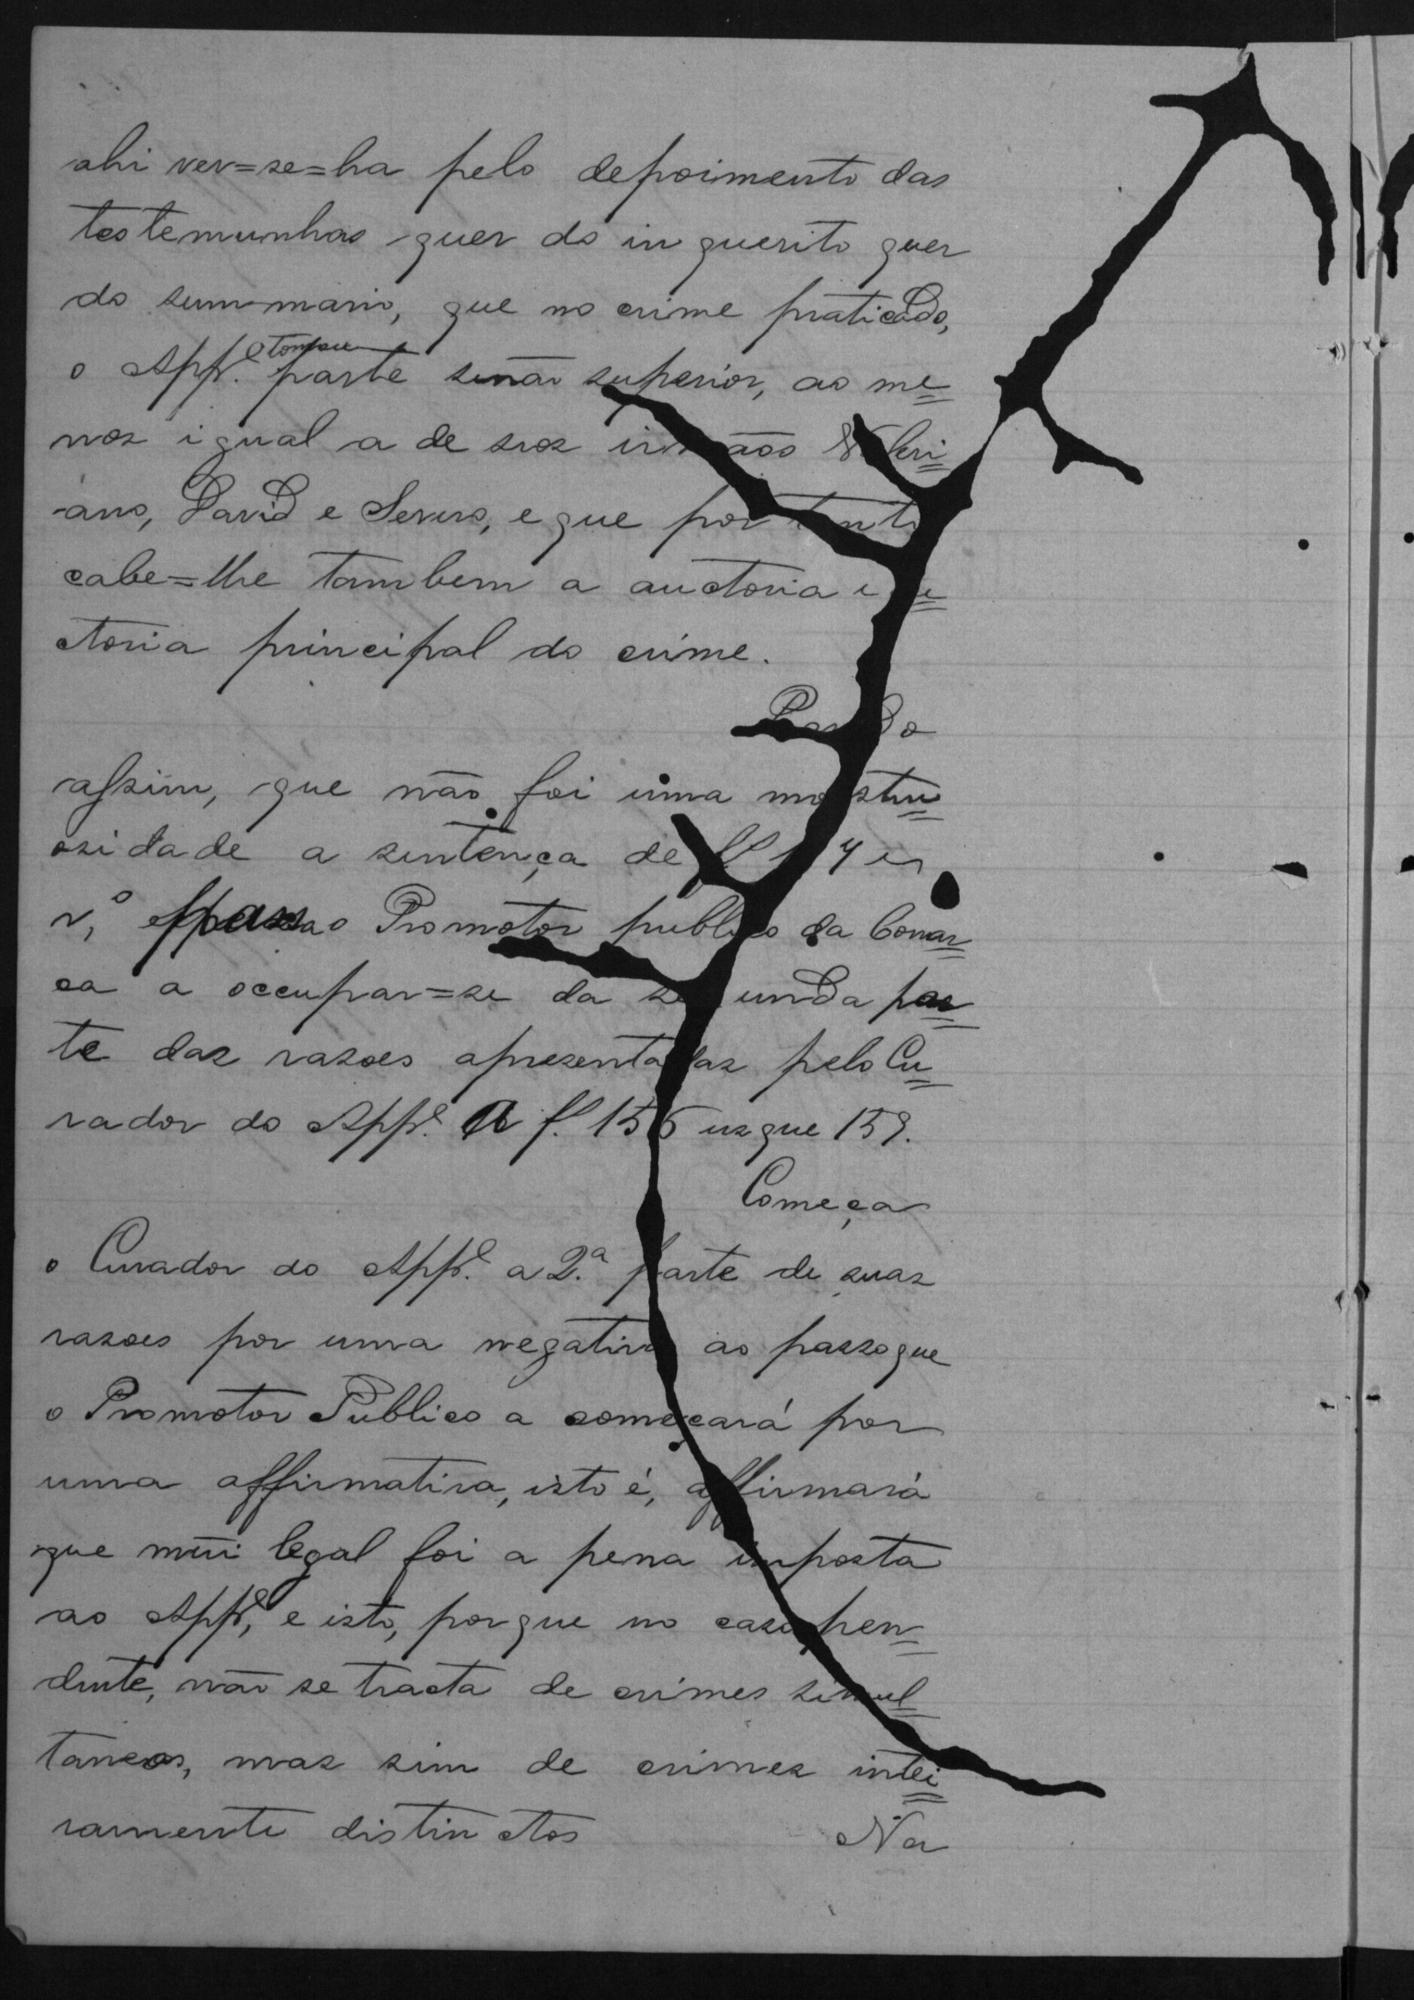 ahi ver=se=ha pelo depoimento das
testemunhas quer do inquerito quer
do summario, que no crime praticado,
o App.º tomou parte sinão superior, ao me
nos igual a de seos irmãos
ano, David e Severo, e que por tanto
cabe=lhe tambem a auctoria e
ctoria principal do crime.
Parado
assim, que não foi uma monstru
osidade a sentença de f.
v,º passa o Promotor publico da Comar
ca a occupar=se da segunda par
te das rasoes apresentadas pelo Cu
rador do App.º A f. 156 usque 159.
Começa
o Curador do App.º a 2.ª parte de suas
rasoes por uma negativa ao passo que
o Promotor Publico a começará por
uma affirmativa, isto é, affirmará
que mui legal foi a pena imposta
ao App.º, e isto, porque no caso pen
dente, não se tracta de crimes simul
taneos, mas sim de crimes intei
ramente distinctos Na